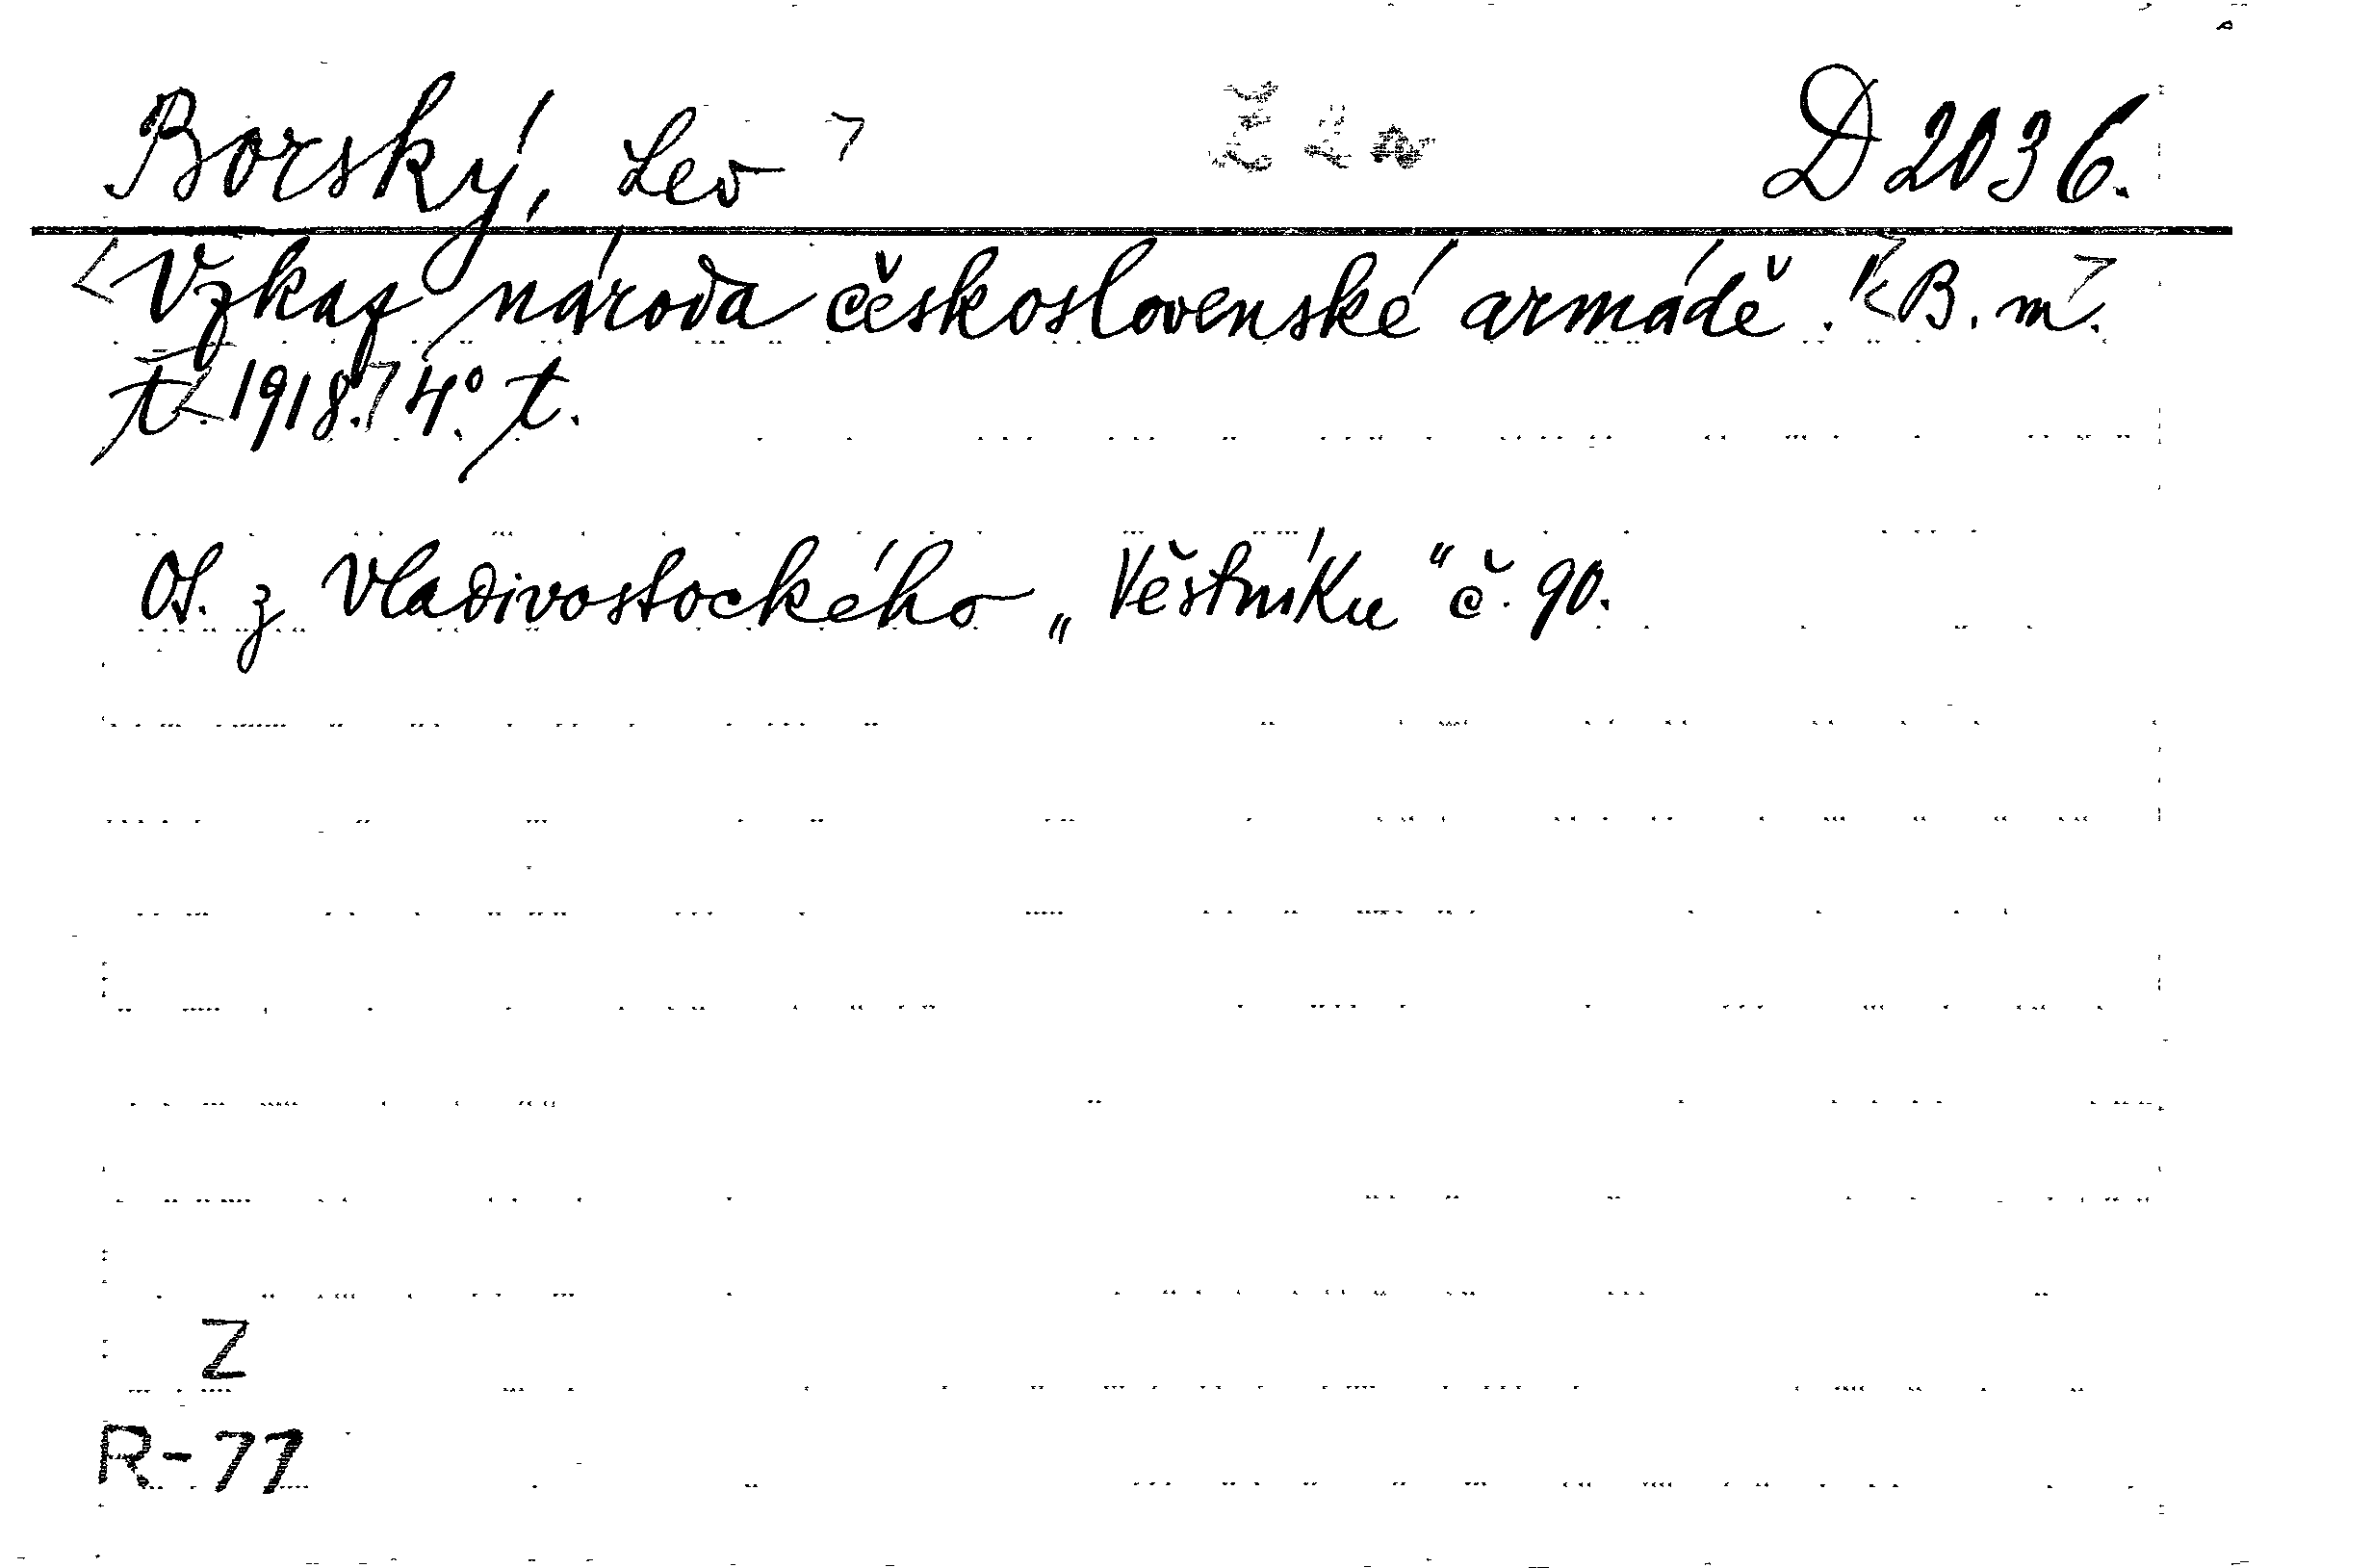 Borský, Lev > D 2036.
<Vzkaz národa československé armádě.> <B. m>.
t. <1918.> 4°. t.
Ot. z Vladivostockého „Věstníku" č. 90.
Z
R-77